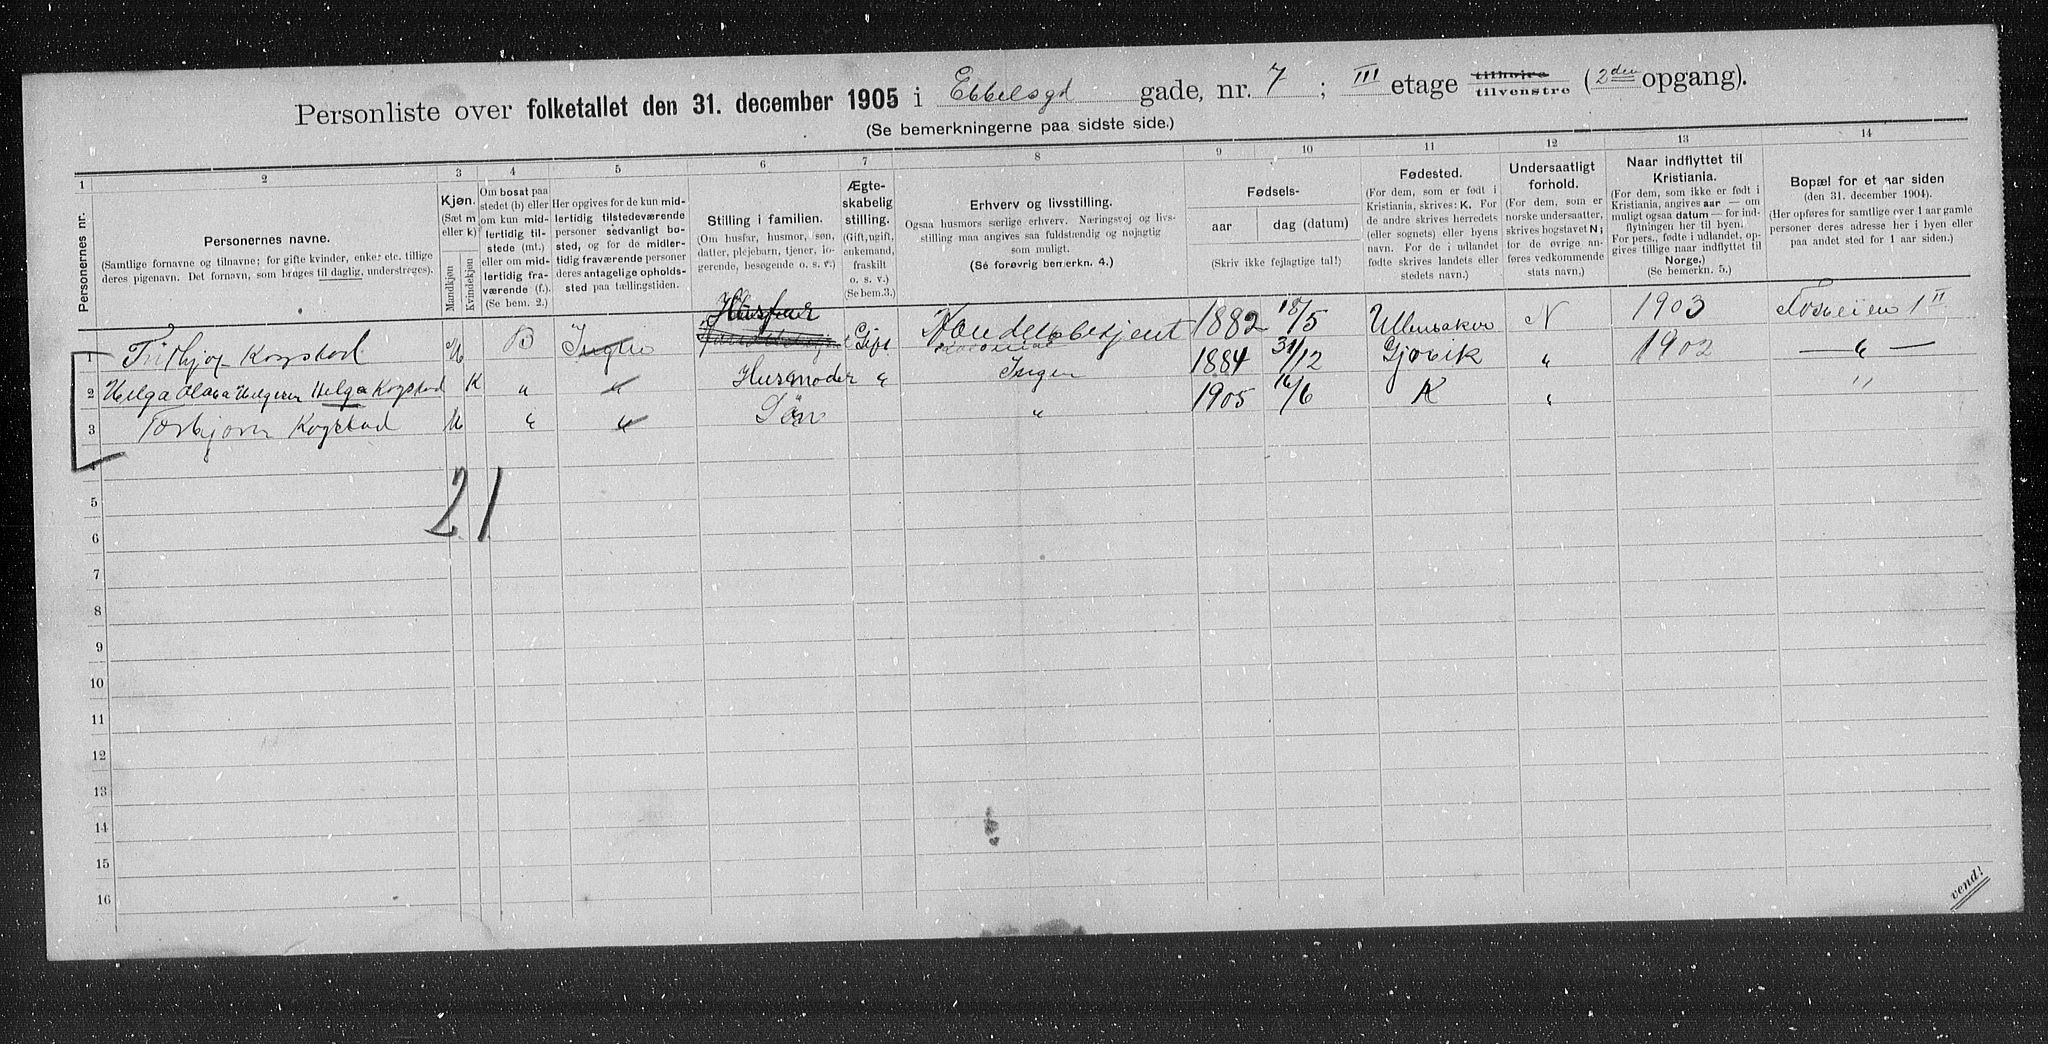 Personliste over folketallet den 31. december 1905 i Ebbelsgd gade, nr. 7 ; III etage tilhøire tilvenstre (2den opgang).
(Se bemerkningerne paa sidste side.)
1 2 3 4 5 6 7 8 9 10 11 12 13 14
Personernes nr.
Personernes navne.
(Samtlige fornavne og tilnavne; for gifte kvinder, enker etc. tillige deres pigenavn. Det fornavn, som bruges til daglig, understreges).
Kjøn.
(Sæt m eller k)
Mandkjøn
Kvindekjøn
Om bosat paa stedet (b) eller om kun midlertidig tilstede (mt.) eller om midlertidig fraværende (f.). (Se bem. 2.)
Her opgives for de kun midlertidig tilstedeværende personer sedvanligt bosted, og for de midlertidig fraværende personer deres antagelige opholdssted paa tællingstiden.
Stilling i familien.
(Om husfar, husmor, søn, datter, plejebarn, tjener, logerende, besøgende o. s. v.)
Ægteskabelig stilling.
(Gift, ugift, enkemand, fraskilt o. s. v.) (Se bem.3.)
Erhverv og livsstilling.
Ogsaa husmors særlige erhverv. Næringsvej og livsstilling maa angives saa fuldstændig og nøjagtig som muligt.
(Se forøvrig bemerkn. 4.)
Fødsels-
aar dag (datum)
(Skriv ikke fejlagtige tal!)
Fødested.
(For dem, som er født i Kristiania, skrives: K. For de andre skrives herredets (eller sognets) eller byens navn. For de i udlandet fødte skrives landets eller stedets navn.)
Undersaatligt forhold.
(For dem, som er norske undersaatter, skrives bogstavet N; for de øvrige anføres vedkommende stats navn.)
Naar indflyttet til Kristiania.
(For dem, som ikke er født i Kristiania, angives aar — om muligt ogsaa datum — for indflytningen her til byen. For pers., fødte i udlandet, opgives tillige naar indflyttet til Norge.)
(Se bemerkn. 5.)
Bopæl for et aar siden
(den 31. december 1904).
(Her opføres for samtlige over 1 aar gamle personer deres adresse her i byen eller paa andet sted for 1 aar siden.)
1 Fritbjof Kogstad M B Husfar Gift Handelsbetjent 1882 18/5 Ullensaker N 1903 Fosveien 1 II
2 Helga Olava Helgesen Helga Kogstad K " " Husmoder " Ingen 1884 31/12 Gjøvik " 1902 — " —
3 Torbjørn Kogstad M " " Søn " 1905 16/6 K " "
4
5
21
6
7
8
9
10
11
12
13
14
15
16
vend!